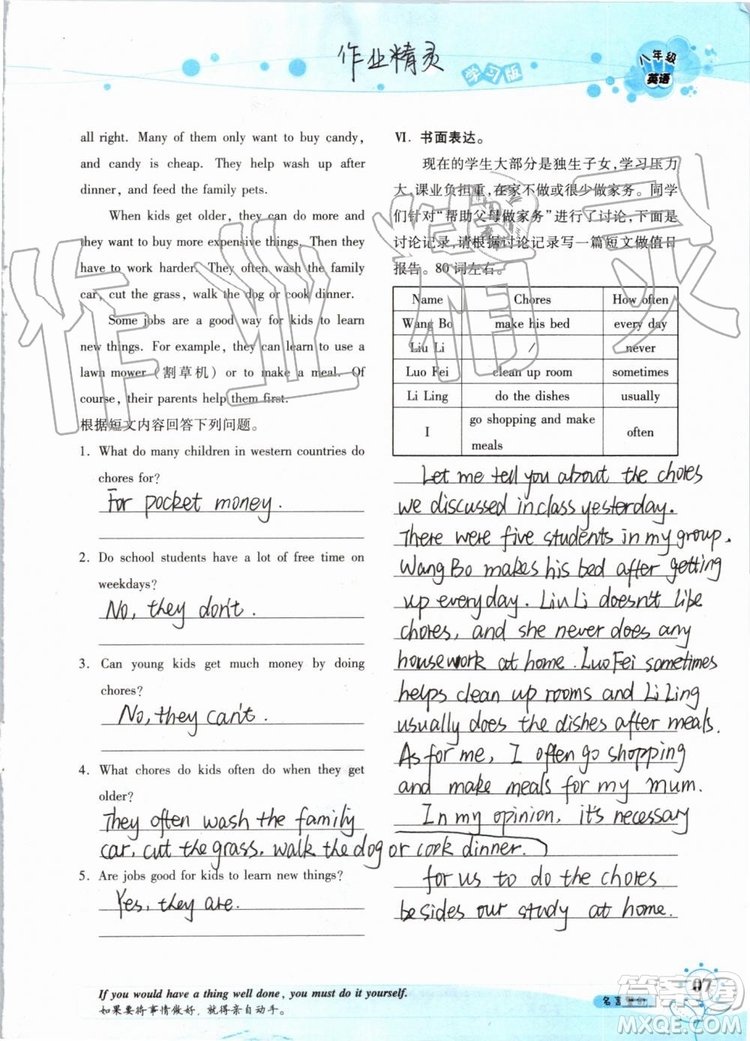 作业精灵
学习版
八年级
英语
all right. Many of them only want to buy candy,
and candy is cheap. They help wash up after
dinner, and feed the family pets.
When kids get older, they can do more and
they want to buy more expensive things. Then they
have to work harder. They often wash the family
car, cut the grass, walk the dog or cook dinner.
Some jobs are a good way for kids to learn
new things. For example, they can learn to use a
lawn mower (割草机) or to make a meal. Of
course, their parents help them first.
根据短文内容回答下列问题。
1. What do many children in western countries do
chores for?
For pocket money.
2. Do school students have a lot of free time on
weekdays?
No, they don't.
3. Can young kids get much money by doing
chores?
No, they can't.
4. What chores do kids often do when they get
older?
They often wash the family
car, cut the grass, walk the dog or cook dinner.
5. Are jobs good for kids to learn new things?
Yes, they are.
Ⅵ. 书面表达。
现在的学生大部分是独生子女,学习压力
大,课业负担重,在家不做或很少做家务。同学
们针对“帮助父母做家务”进行了讨论,下面是
讨论记录,请根据讨论记录写一篇短文做值日
报告。80词左右。
Name Chores How often
Wang Bo make his bed every day
Liu Li / never
Luo Fei clean up room sometimes
Li Ling do the dishes usually
I go shopping and make meals often
Let me tell you about the chores
we discussed in class yesterday.
There were five students in my group.
Wang Bo makes his bed after getting
up everyday. Liu Li doesn't like
chores, and she never does any
housework at home. Luo Fei sometimes
helps clean up rooms and Li Ling
usually does the dishes after meals.
As for me, I often go shopping
and make meals for my mum.
In my opinion, it's necessary
for us to do the chores
besides our study at home.
If you would have a thing well done, you must do it yourself.
如果要将事情做好,就得亲自动手。
07
作业精灵
答案圈